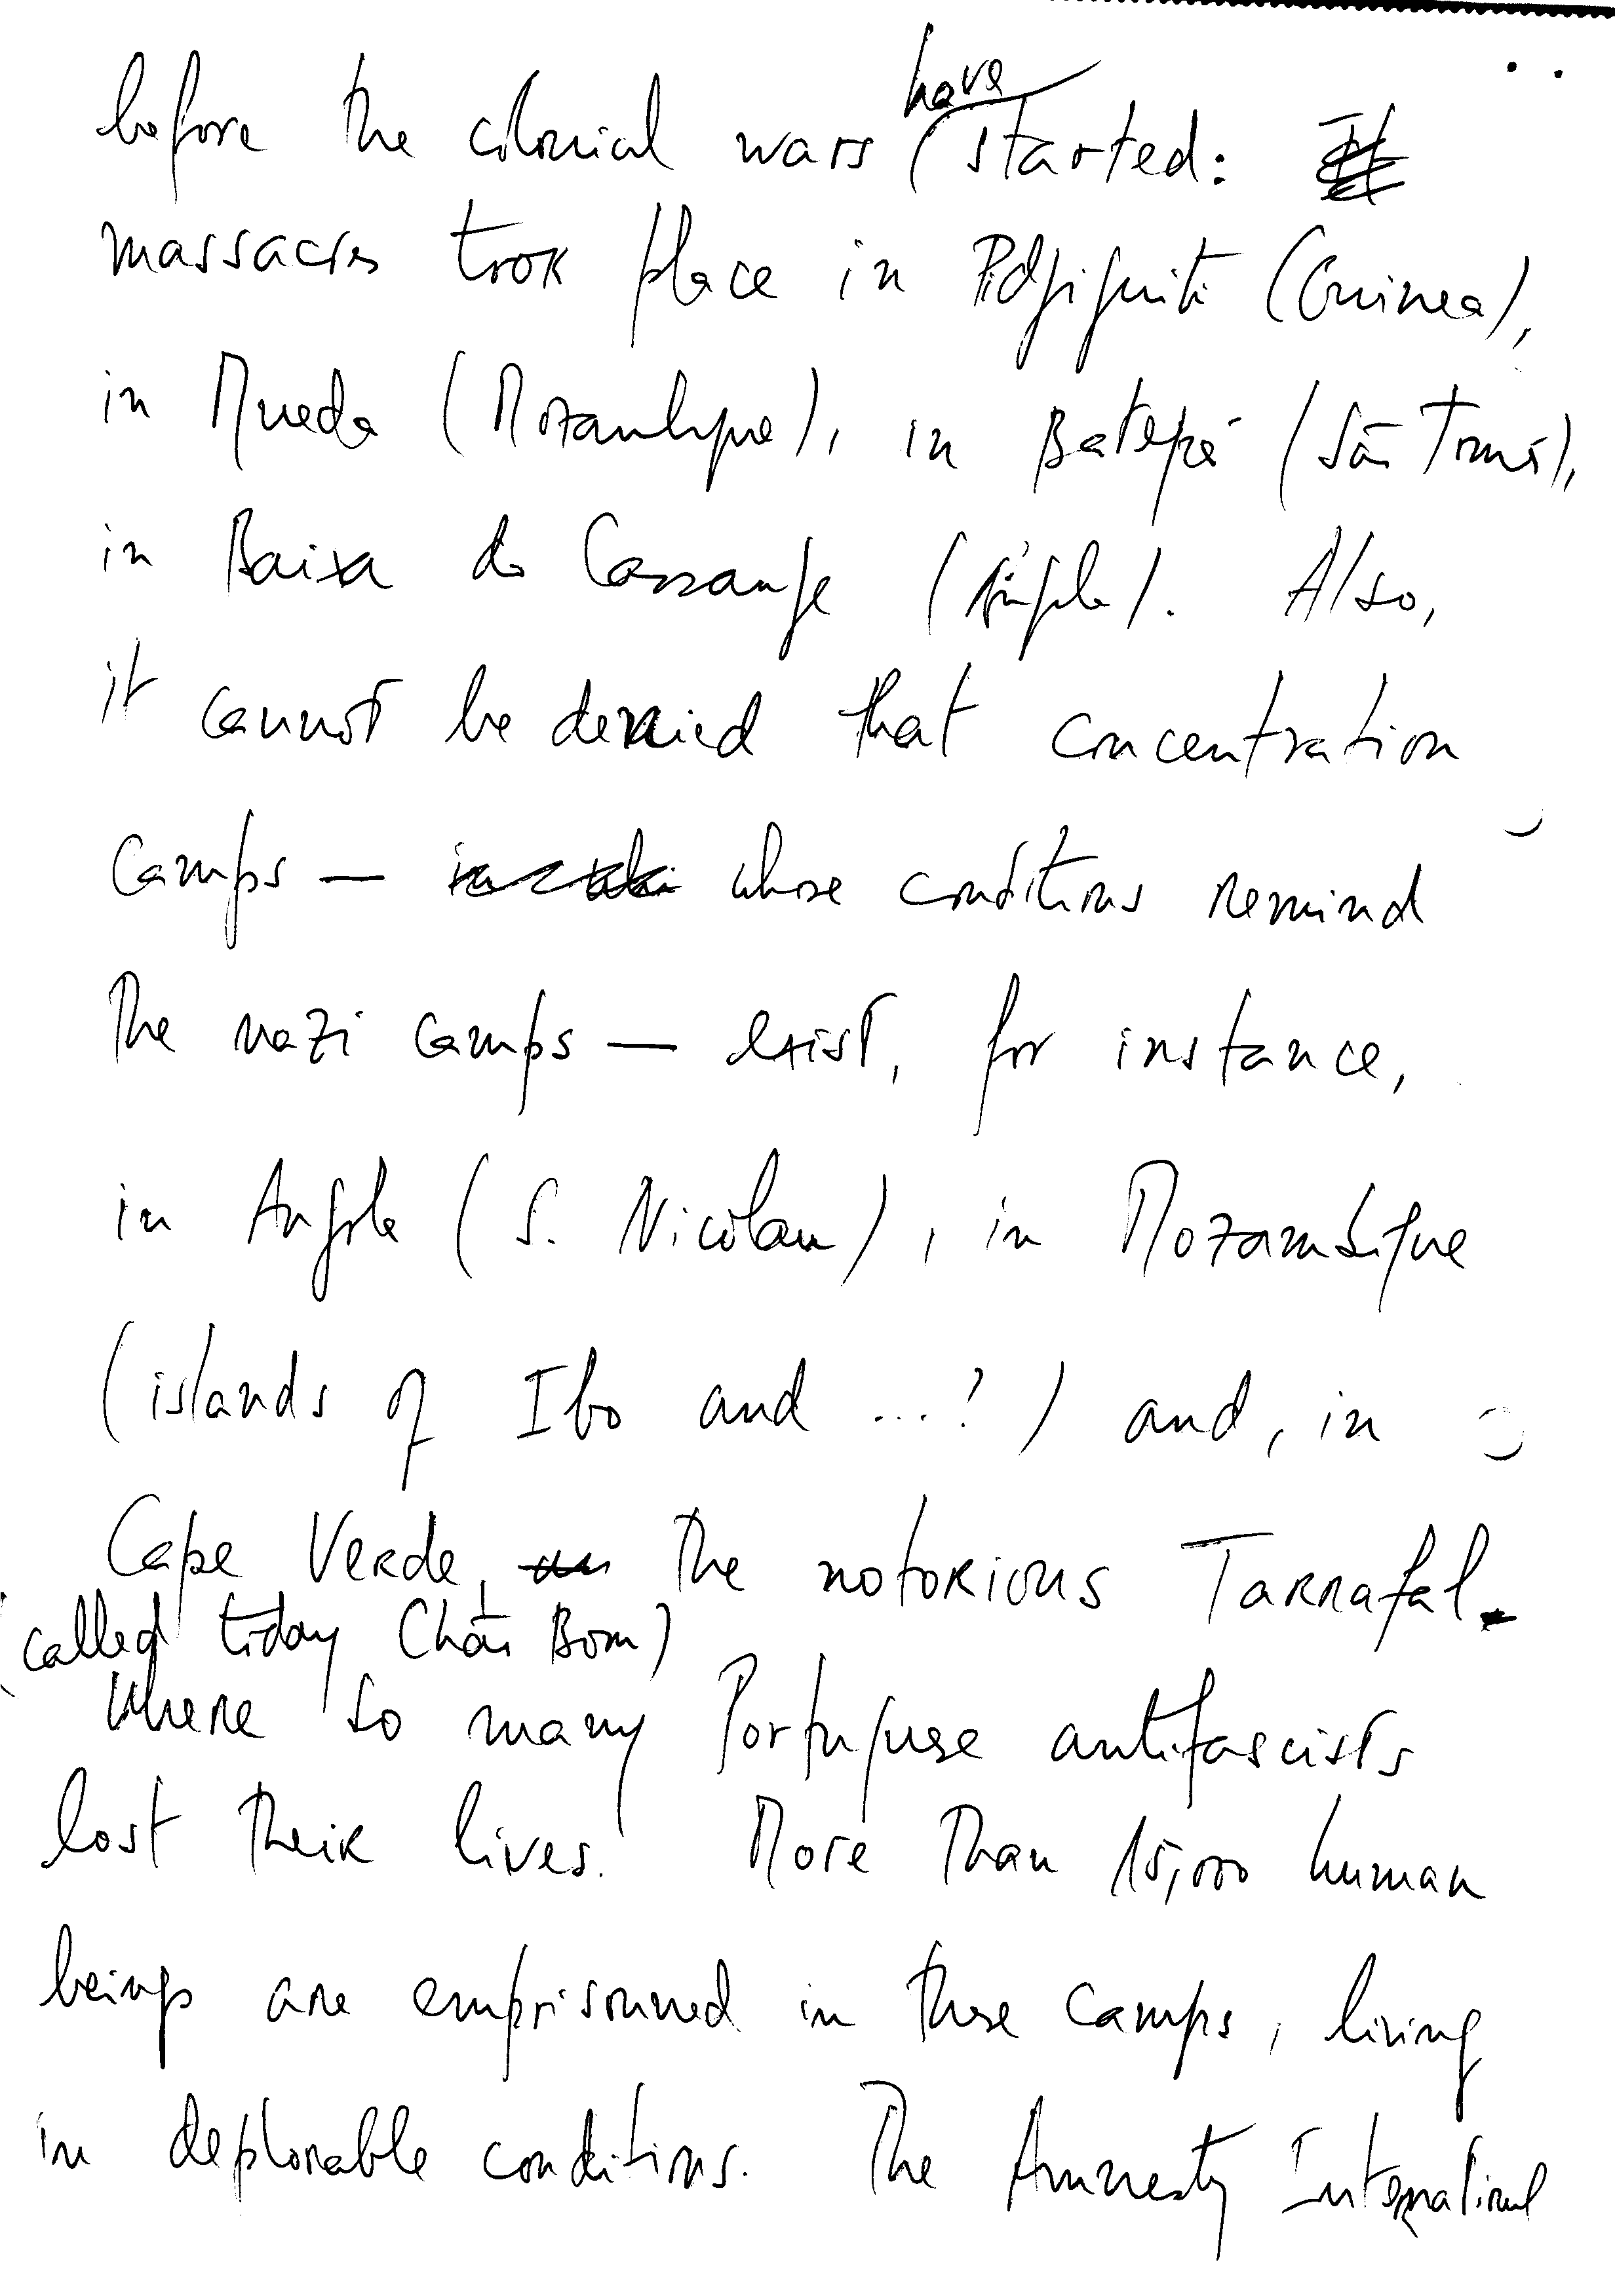 before the colonial wars have started:
massacres took place in Pidjiguiti (Guinea),
in Mueda (Mozambique), in Batepá (São Tomé),
in Baixa do Cassange (Angola). Also,
it cannot be denied that concentration
camps — whose conditions remind
the nazi camps — exist, for instance,
in Angola (S. Nicolau), in Mozambique
(islands of Ibo and ...?) and, in
Cape Verde, the notorious Tarrafal
(called today Chão Bom)
where so many Portuguese antifascists
lost their lives. More than 15,000 human
beings are emprisonned in these camps, living
in deplorable conditions. The Amnesty International